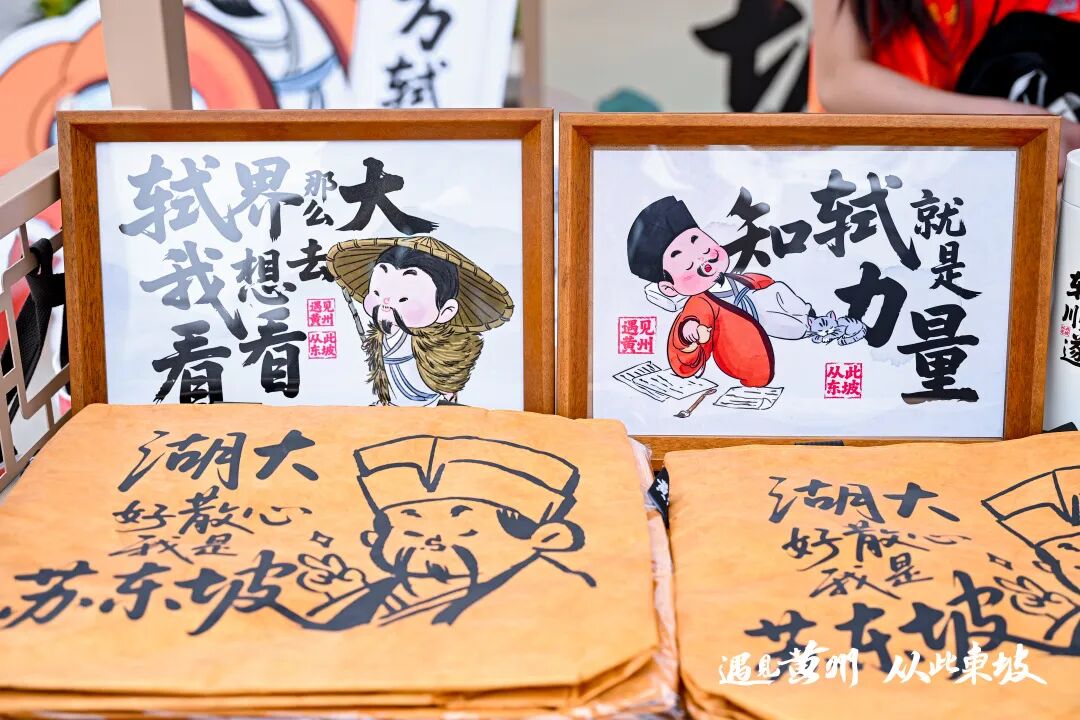 万
轼
轼界那么大
我想去
看看
遇见
黄州
从此
东坡
知轼就是
力量
遇见
黄州
从此
东坡
湖大
好散心
我是
苏东坡
湖大
好散心
我是
苏东坡
遇见黄州 从此東坡